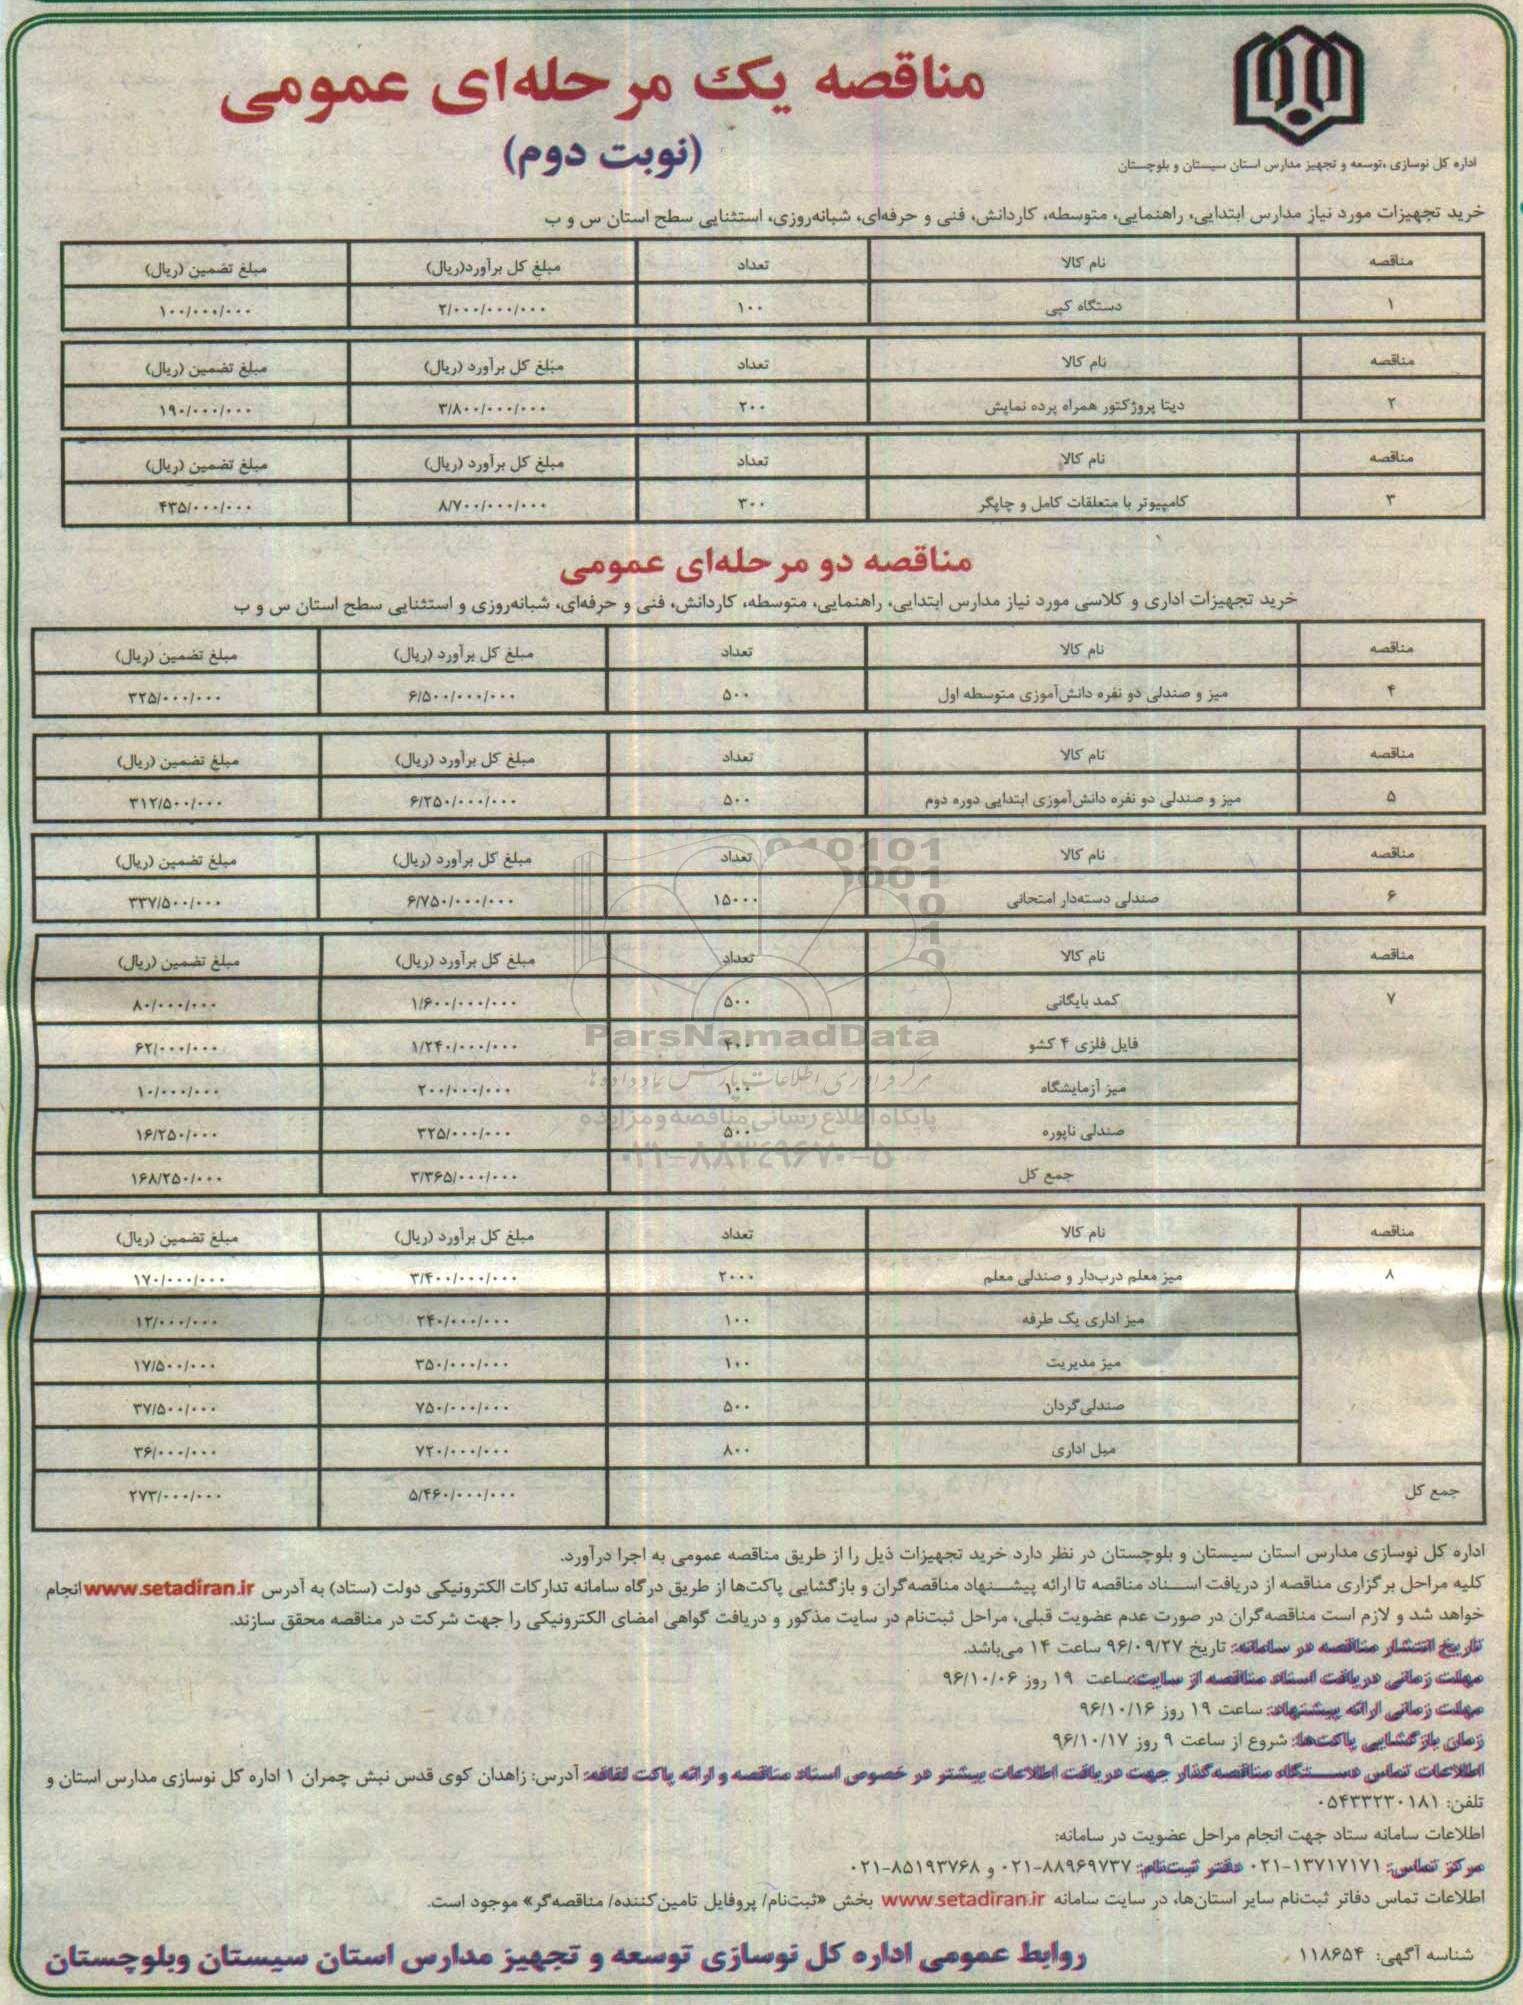 مناقصه یک مرحله‌ای عمومی
(نوبت دوم)
اداره کل نوسازی ،توسعه و تجهیز مدارس استان سیستان و بلوچستان
خرید تجهیزات مورد نیاز مدارس ابتدایی، راهنمایی، متوسطه، کاردانش، فنی و حرفه‌ای، شبانه‌روزی، استثنایی سطح استان س و ب
مناقصه نام کالا تعداد مبلغ کل برآورد(ریال) مبلغ تضمین (ریال)
۱ دستگاه کپی ۱۰۰ ۲/۰۰۰/۰۰۰/۰۰۰ ۱۰۰/۰۰۰/۰۰۰
مناقصه نام کالا تعداد مبلغ کل برآورد (ریال) مبلغ تضمین (ریال)
۲ دیتا پروژکتور همراه پرده نمایش ۲۰۰ ۳/۸۰۰/۰۰۰/۰۰۰ ۱۹۰/۰۰۰/۰۰۰
مناقصه نام کالا تعداد مبلغ کل برآورد (ریال) مبلغ تضمین (ریال)
۳ کامپیوتر با متعلقات کامل و چاپگر ۳۰۰ ۸/۷۰۰/۰۰۰/۰۰۰ ۴۳۵/۰۰۰/۰۰۰
مناقصه دو مرحله‌ای عمومی
خرید تجهیزات اداری و کلاسی مورد نیاز مدارس ابتدایی، راهنمایی، متوسطه، کاردانش، فنی و حرفه‌ای، شبانه‌روزی و استثنایی سطح استان س و ب
مناقصه نام کالا تعداد مبلغ کل برآورد (ریال) مبلغ تضمین (ریال)
۴ میز و صندلی دو نفره دانش‌آموزی متوسطه اول ۵۰۰ ۶/۵۰۰/۰۰۰/۰۰۰ ۳۲۵/۰۰۰/۰۰۰
مناقصه نام کالا تعداد مبلغ کل برآورد (ریال) مبلغ تضمین (ریال)
۵ میز و صندلی دو نفره دانش‌آموزی ابتدایی دوره دوم ۵۰۰ ۶/۲۵۰/۰۰۰/۰۰۰ ۳۱۲/۵۰۰/۰۰۰
مناقصه نام کالا تعداد مبلغ کل برآورد (ریال) مبلغ تضمین (ریال)
۶ صندلی دسته‌دار امتحانی ۱۵۰۰۰ ۶/۷۵۰/۰۰۰/۰۰۰ ۳۳۷/۵۰۰/۰۰۰
مناقصه نام کالا تعداد مبلغ کل برآورد (ریال) مبلغ تضمین (ریال)
۷ کمد بایگانی ۵۰۰ ۱/۶۰۰/۰۰۰/۰۰۰ ۸۰/۰۰۰/۰۰۰
فایل فلزی ۴ کشو ۴۰۰ ۱/۲۴۰/۰۰۰/۰۰۰ ۶۲/۰۰۰/۰۰۰
میز آزمایشگاه ۱۰۰ ۲۰۰/۰۰۰/۰۰۰ ۱۰/۰۰۰/۰۰۰
صندلی تاپوره ۵۰۰ ۳۲۵/۰۰۰/۰۰۰ ۱۶/۲۵۰/۰۰۰
جمع کل ۳/۳۶۵/۰۰۰/۰۰۰ ۱۶۸/۲۵۰/۰۰۰
ParsNamadData
پایگاه اطلاع رسانی مناقصه و مزایده
۰۲۱-۸۸۳۴۹۶۷۰-۵
مناقصه نام کالا تعداد مبلغ کل برآورد (ریال) مبلغ تضمین (ریال)
۸ میز معلم درب‌دار و صندلی معلم ۲۰۰۰ ۳/۴۰۰/۰۰۰/۰۰۰ ۱۷۰/۰۰۰/۰۰۰
میز اداری یک طرفه ۱۰۰ ۲۴۰/۰۰۰/۰۰۰ ۱۲/۰۰۰/۰۰۰
میز مدیریت ۱۰۰ ۳۵۰/۰۰۰/۰۰۰ ۱۷/۵۰۰/۰۰۰
صندلی‌گردان ۵۰۰ ۷۵۰/۰۰۰/۰۰۰ ۳۷/۵۰۰/۰۰۰
مبل اداری ۸۰۰ ۷۲۰/۰۰۰/۰۰۰ ۳۶/۰۰۰/۰۰۰
جمع کل ۵/۴۶۰/۰۰۰/۰۰۰ ۲۷۳/۰۰۰/۰۰۰
اداره کل نوسازی مدارس استان سیستان و بلوچستان در نظر دارد خرید تجهیزات ذیل را از طریق مناقصه عمومی به اجرا درآورد.
کلیه مراحل برگزاری مناقصه از دریافت اسناد مناقصه تا ارائه پیشنهاد مناقصه‌گران و بازگشایی پاکت‌ها از طریق درگاه سامانه تدارکات الکترونیکی دولت (ستاد) به آدرس www.setadiran.ir انجام
خواهد شد و لازم است مناقصه‌گران در صورت عدم عضویت قبلی، مراحل ثبت‌نام در سایت مذکور و دریافت گواهی امضای الکترونیکی را جهت شرکت در مناقصه محقق سازند.
تاریخ انتشار مناقصه در سامانه: تاریخ ۹۶/۰۹/۲۷ ساعت ۱۴ می‌باشد.
مهلت زمانی دریافت اسناد مناقصه از سایت: ساعت ۱۹ روز ۹۶/۱۰/۰۶
مهلت زمانی ارائه پیشنهاد: ساعت ۱۹ روز ۹۶/۱۰/۱۶
زمان بازگشایی پاکت‌ها: شروع از ساعت ۹ روز ۹۶/۱۰/۱۷
اطلاعات تماس دستگاه مناقصه‌گذار جهت دریافت اطلاعات بیشتر در خصوص اسناد مناقصه و ارائه پاکت لفافه: آدرس: زاهدان کوی قدس نبش چمران ۱ اداره کل نوسازی مدارس استان و
تلفن: ۰۵۴۳۳۲۳۰۱۸۱
اطلاعات سامانه ستاد جهت انجام مراحل عضویت در سامانه:
مرکز تماس: ۱۳۷۱۷۱۷۱-۰۲۱ دفتر ثبت‌نام: ۸۸۹۶۹۷۳۷-۰۲۱ و ۸۵۱۹۳۷۶۸-۰۲۱
اطلاعات تماس دفاتر ثبت‌نام سایر استان‌ها، در سایت سامانه www.setadiran.ir بخش «ثبت‌نام/ پروفایل تامین‌کننده/ مناقصه‌گر» موجود است.
شناسه آگهی: ۱۱۸۶۵۴
روابط عمومی اداره کل نوسازی توسعه و تجهیز مدارس استان سیستان وبلوچستان